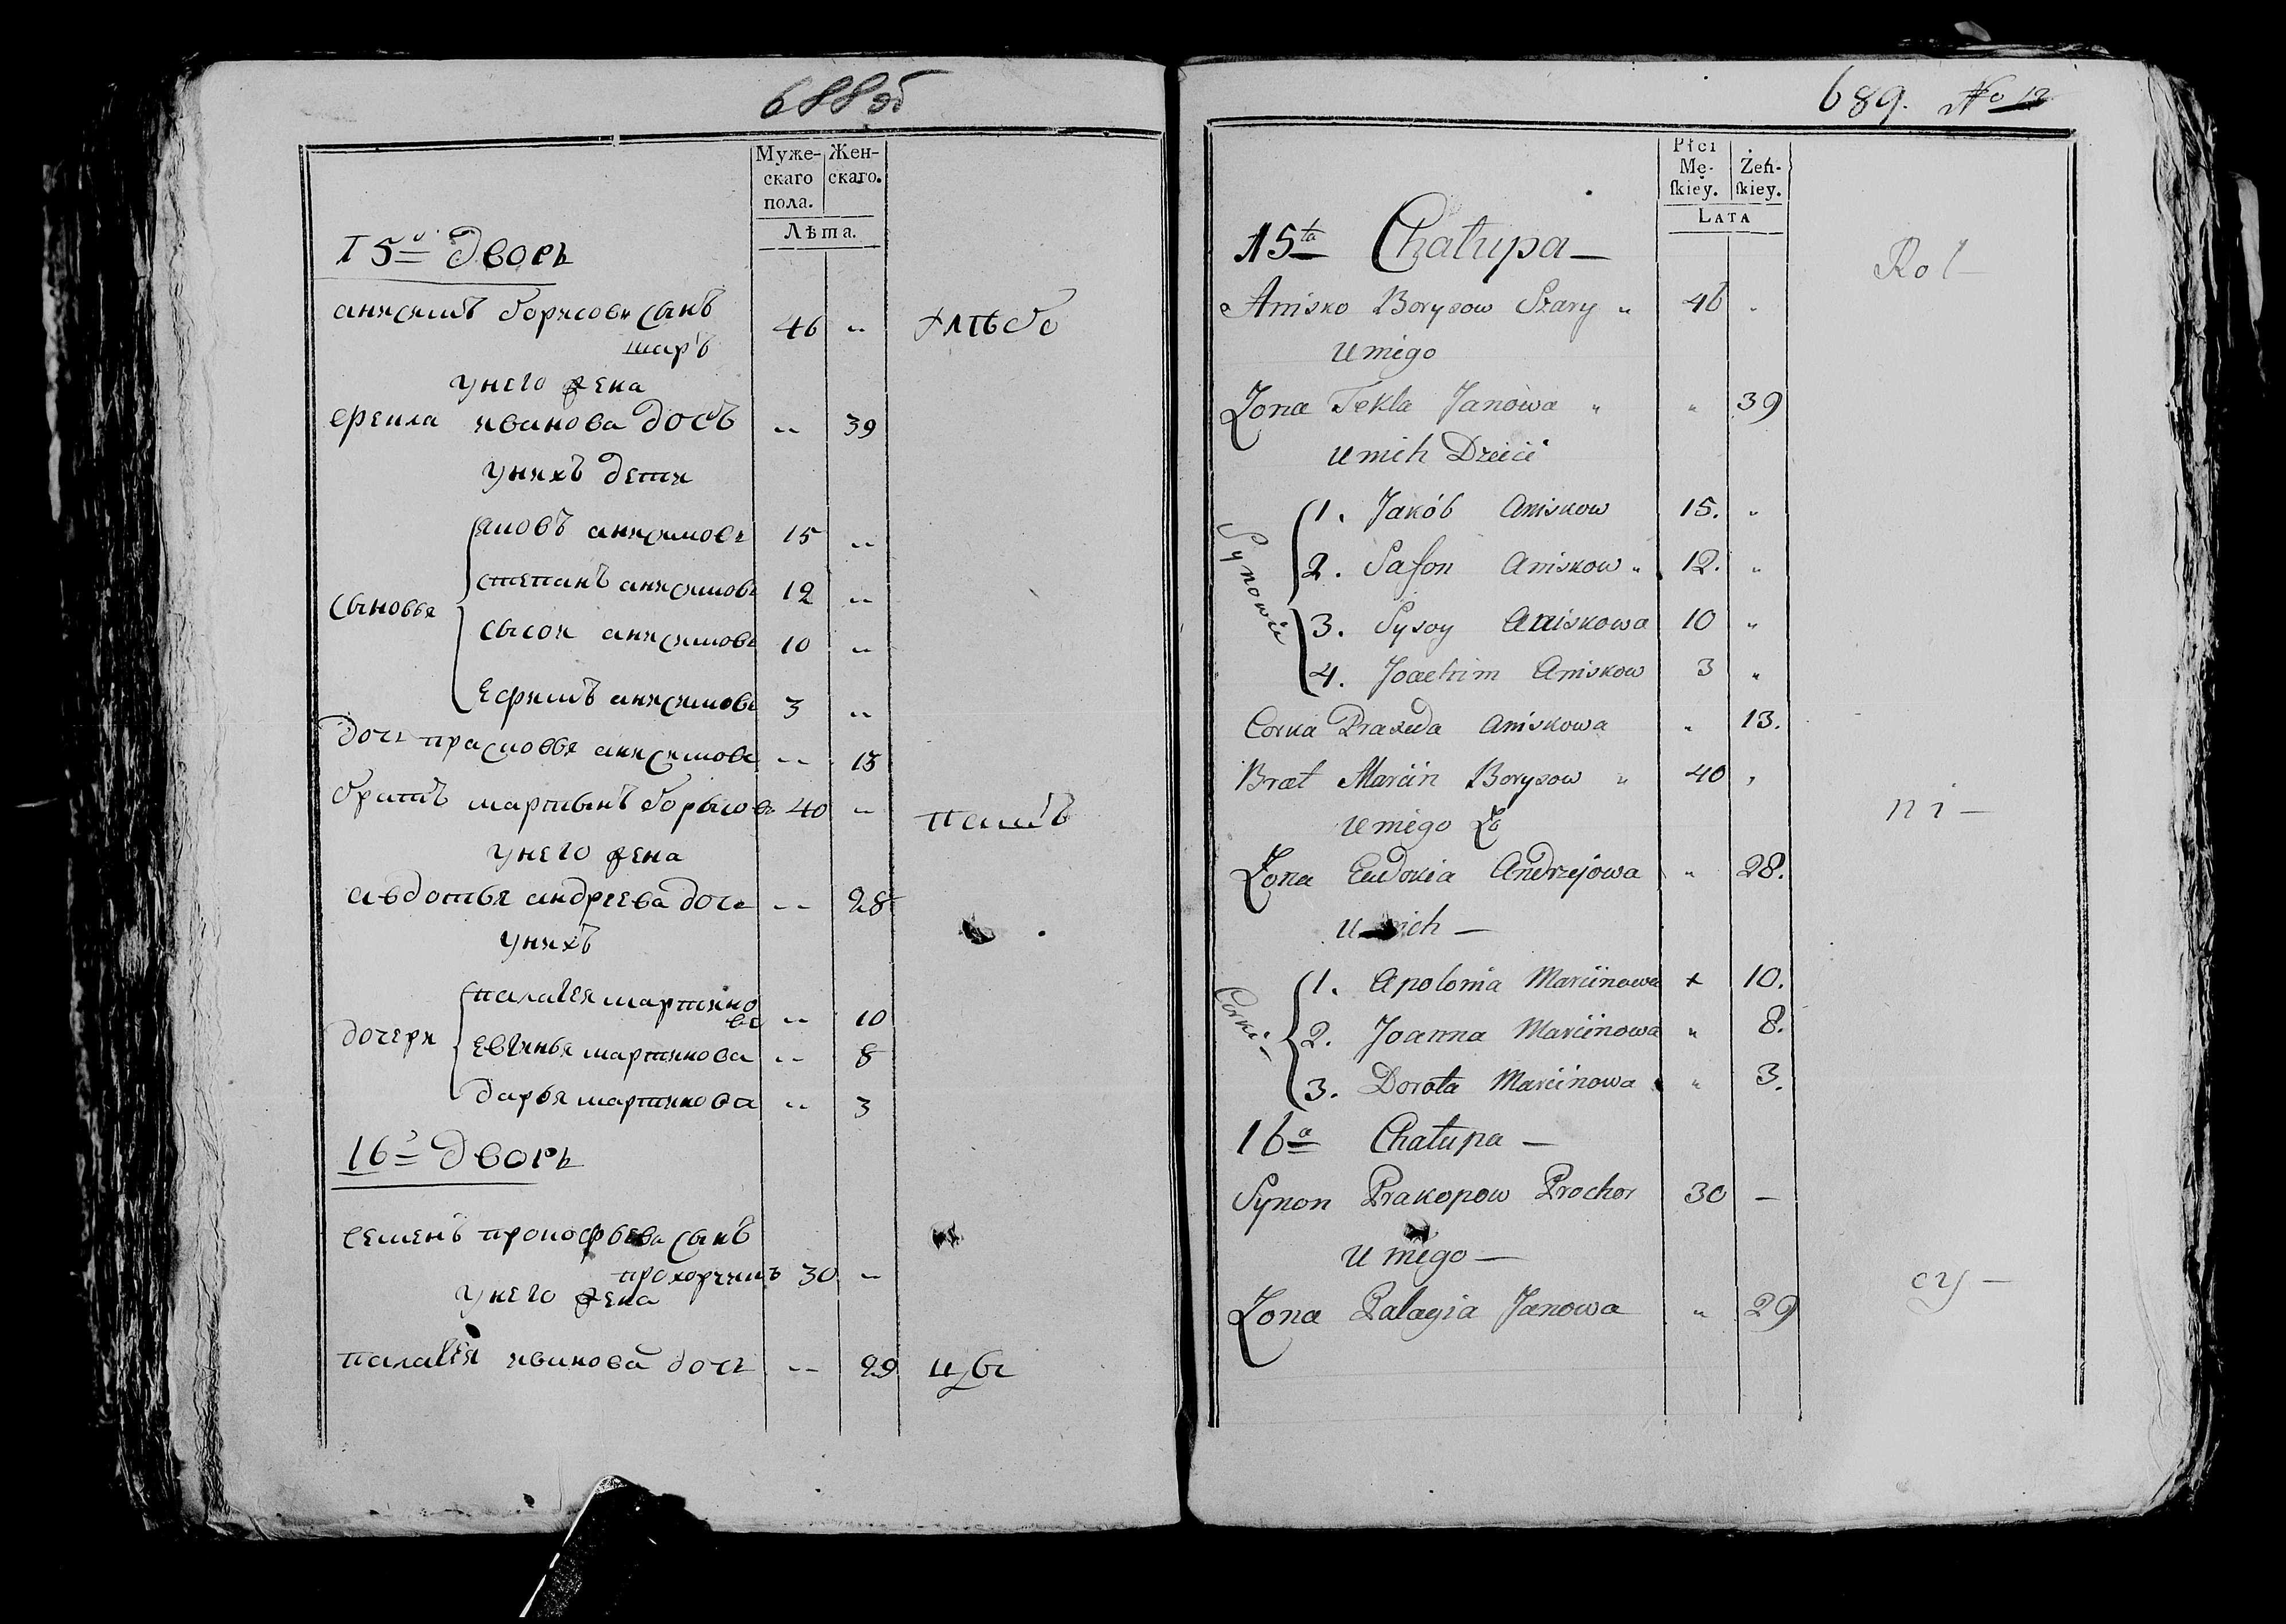 688об
Муже-
скаго
пола.
Жен-
скаго.
Лѣта.
15й дворъ
анисимъ борисовъ сынъ 46 „ хлѣбо
шаръ
унего жена
фекла иванова дочь „ 39
унихъ дети
яковъ анисимовъ 15 „
степанъ анисимовъ 12 „
сыновья
сысои анисимовъ 10 „
Ефимъ анисимовъ 3 „
дочь прасковья анисимова „ 13
братъ мартынъ борысовъ 40 „ пашъ
унего жена
авдотья андреева дочь „ 28
унихъ
палагея мартино
ва „ 10
дочери
Евгинья мартинова „ 8
дарья мартинова „ 3
16й дворъ
семенъ прокофьевъ сынъ
прохорчикъ 30 „
унего жена
палагея иванова дочь „ 29 цы
689. No 12
Płci
Mę-
skiey.
Żeń-
skiey.
LATA
15ta Chałupa — Rol —
Anisko Borysow Szary „ 46 „
U niego
Żona Tekla Janowa „ „ 39
U nich Dzieci
Synowie
1. Jakób Aniskow 15. „
2. Safon Aniskow „ 12. „
3. Sysoy Aniskowa 10 „
4. Joachim Aniskow 3 „
Corka Praxeda Aniskowa „ 13.
Brat Marcin Borysow „ 40 „
U niego Żo ni —
Żona Eudokia Andrzejowa „ 28.
U nich —
Corki —
1. Apolonia Marcinowa + 10.
2. Joanna Marcinowa „ 8.
3. Dorota Marcinowa „ 3.
16a Chałupa —
Symon Prakopow Prochor 30 —
U niego —
cy —
Żona Palagia Janowa „ 29